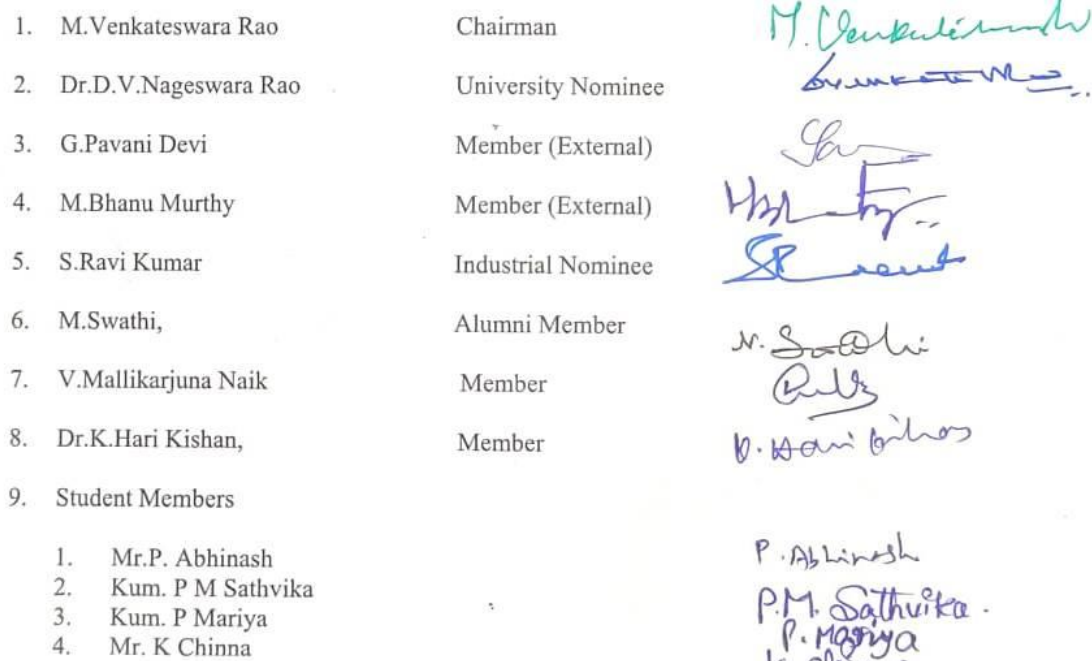 1. M.Venkateswara Rao Chairman
2. Dr.D.V.Nageswara Rao University Nominee
3. G.Pavani Devi Member (External)
4. M.Bhanu Murthy Member (External)
5. S.Ravi Kumar Industrial Nominee
6. M.Swathi, Alumni Member
7. V.Mallikarjuna Naik Member
8. Dr.K.Hari Kishan, Member
9. Student Members
1. Mr.P. Abhinash P. Abhinash
2. Kum. P M Sathvika P.M. Sathvika.
3. Kum. P Mariya P. Mariya
4. Mr. K Chinna